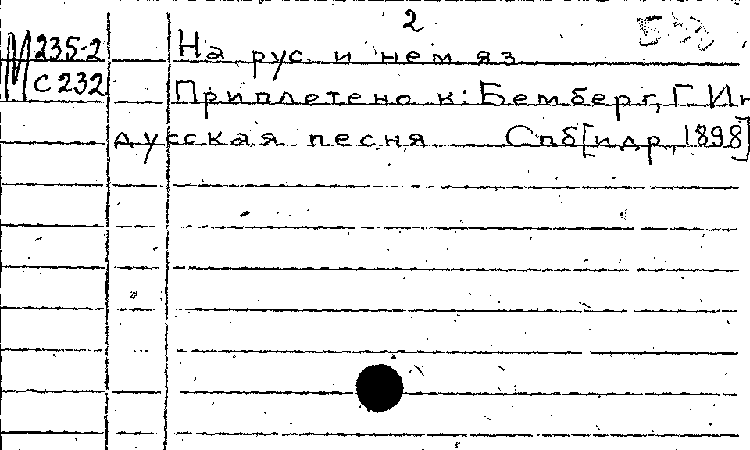 2
М 235-2
С 232
На рус и нем яз
Приплетено к: Бемберг, Г. Ин
дусская песня Спб [и др, 1898]